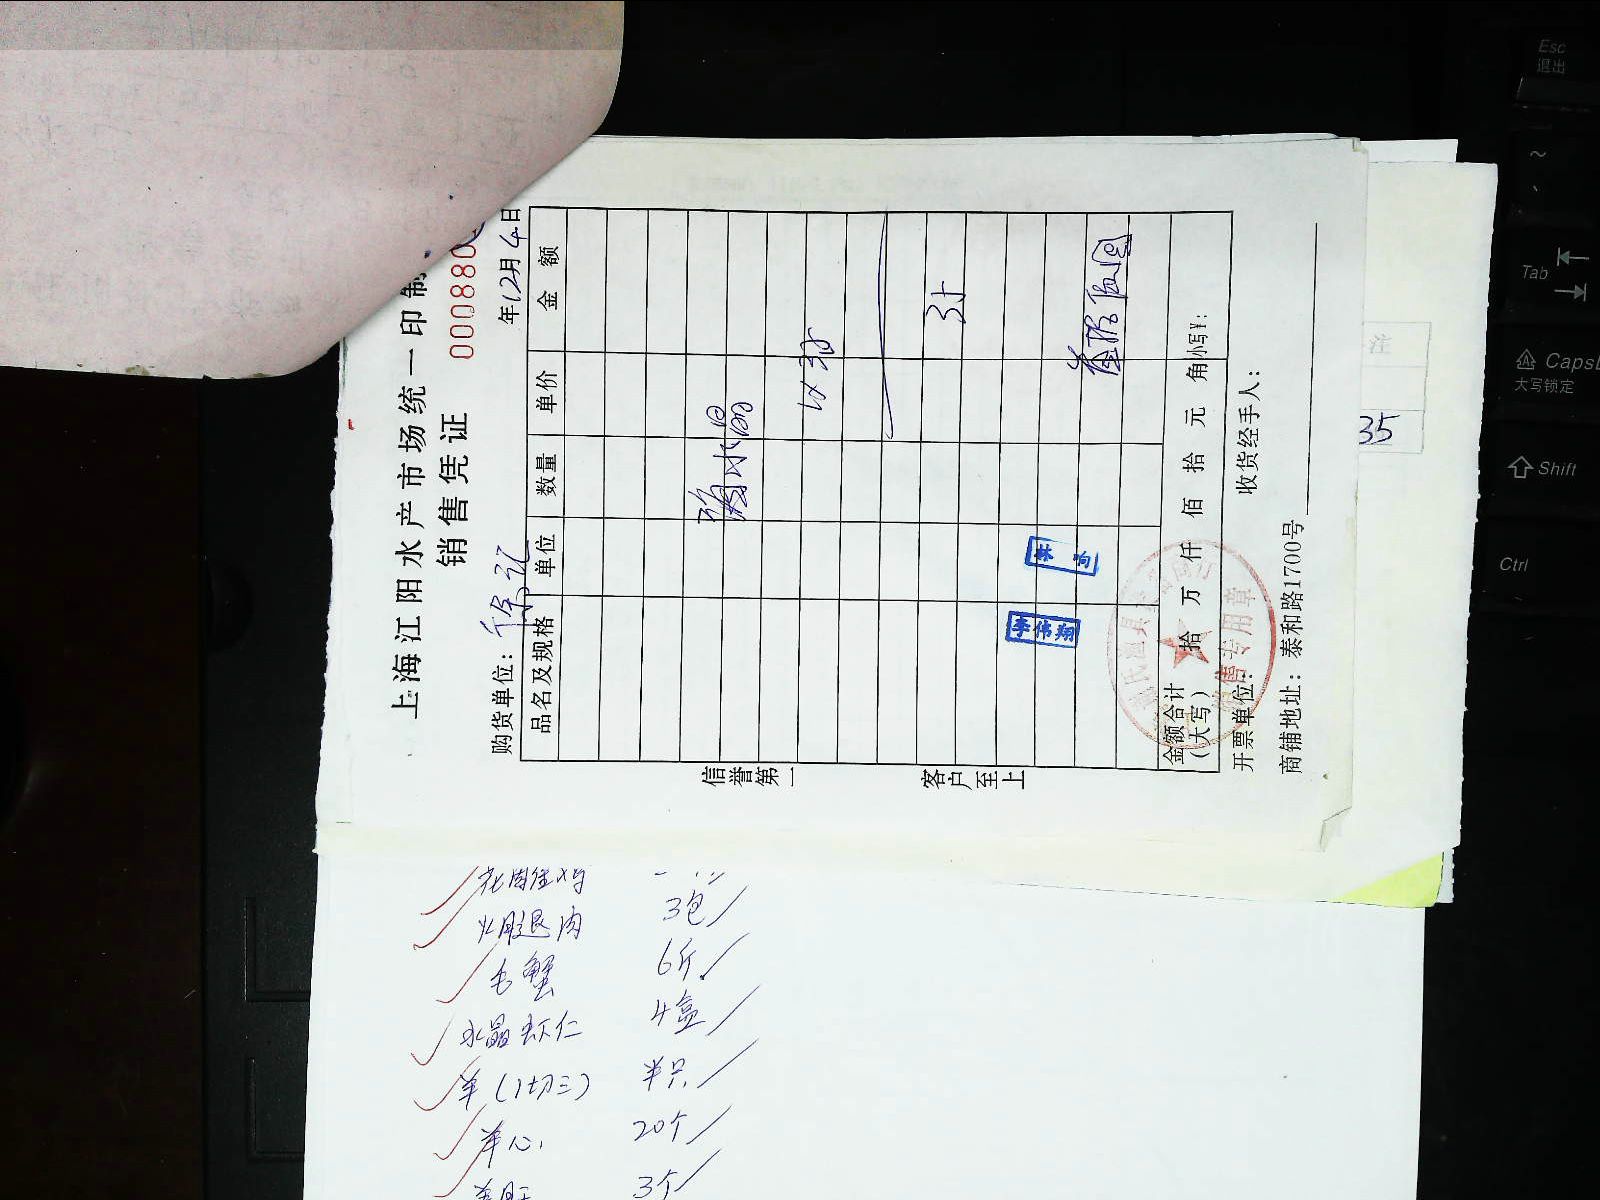 上海江阳水产市场统一印制
销售凭证
000880
购货单位：
年12月4日
品名及规格 单位 数量 单价 金额
1x35
35
林响
李伟翔
金额合计（大写） 拾 万 仟 佰 拾 元 角 小写¥：
开票单位： 收货经手人：
商铺地址：泰和路1700号
销售专用章
信誉第一
客户至上
注
35
火腿肉 3包
毛蟹 6斤
水晶虾仁 4盒
羊（1切三） 半只
羊心 20个
3个
Esc
退出
~
Tab
Caps
大写锁定
Shift
Ctrl